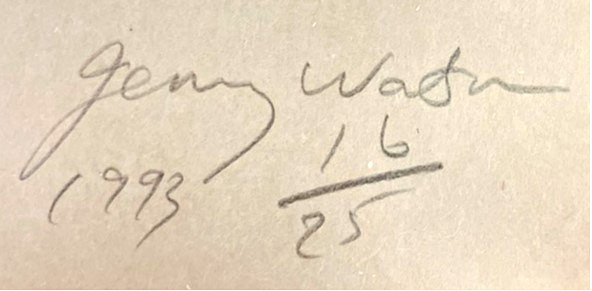 Jenny Watson
1993 16/25